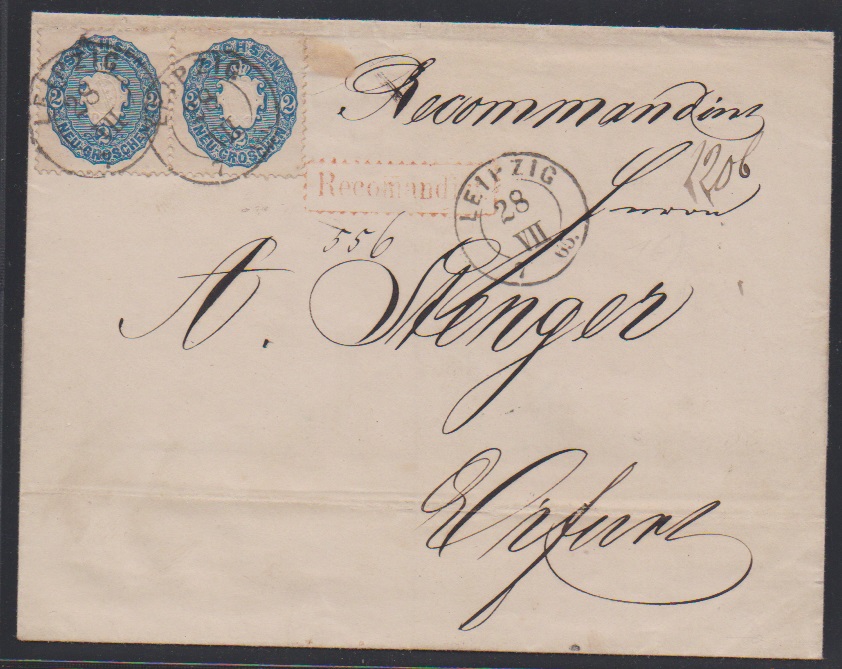 SACHSEN
2 2
NEU-GROSCHEN
SACHSEN
2 2
NEU-GROSCHEN
LEIPZIG
28
VII
LEIPZIG
Recommandirt
Recomandirt
LEIPZIG
28
VII
65.
7
1206
Herrn
556
A. Stenger
Erfurt